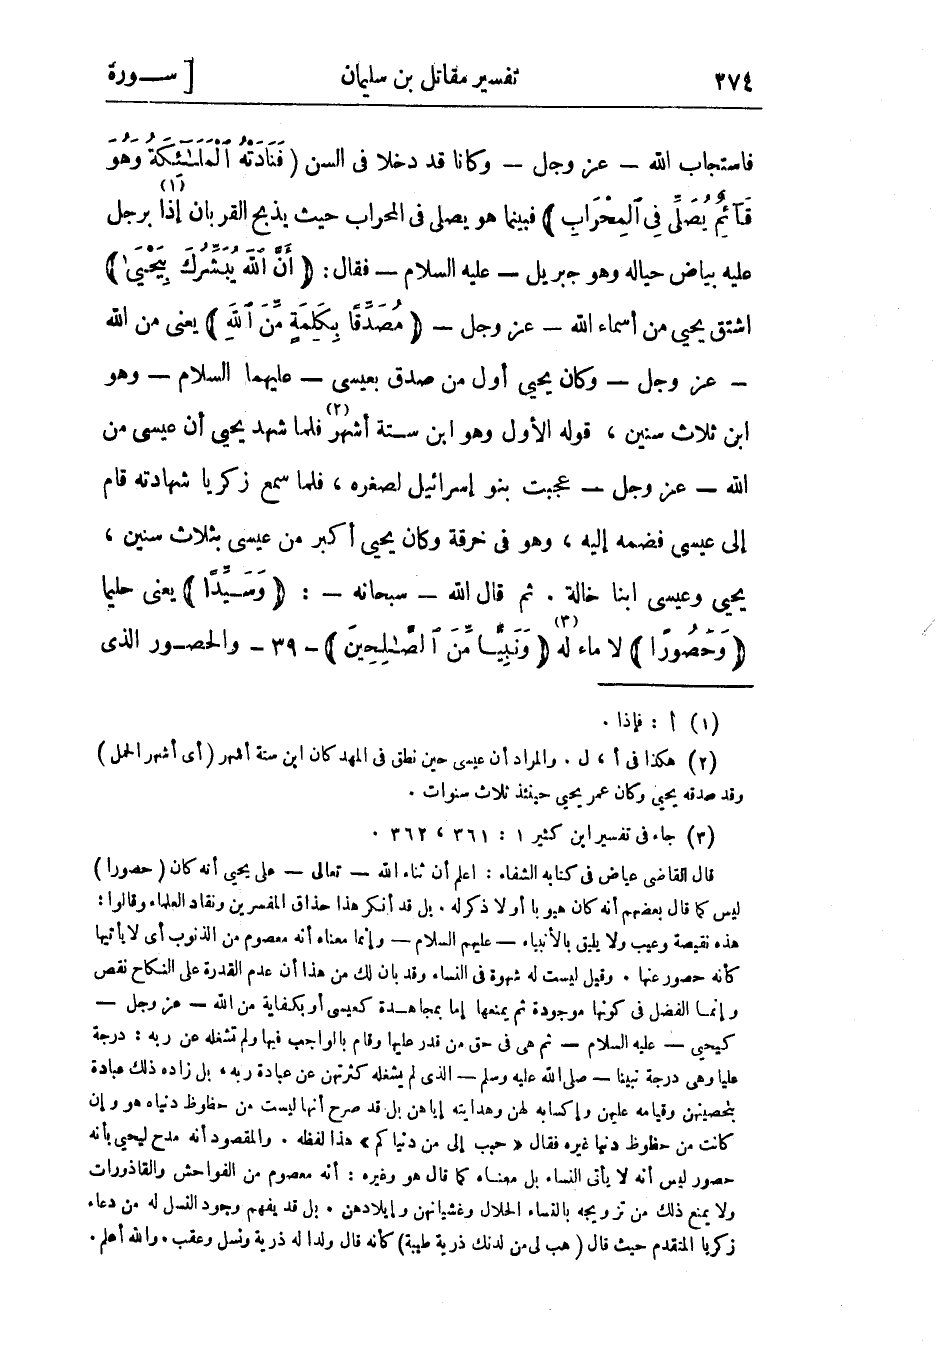 ٢٧٤
تفسير مقاتل بن سليمان
[ ســـورة
فاستجاب الله — عز وجل — وكانا قد دخلا فى السن ( فَنَادَتْهُ ٱلْمَلَـٰٓئِكَةُ وَهُوَ
قَآئِمٌ يُصَلِّى فِى ٱلْمِحْرَابِ ) فبينما هو يصلى فى المحراب حيث يذبح القربان إذا(١) برجل
عليه بياض حياله وهو جبريل — عليه السلام — فقال : ( أَنَّ ٱللَّهَ يُبَشِّرُكَ بِيَحْيَىٰ )
اشتق يحيى من أسماء الله — عز وجل — ( مُصَدِّقًا بِكَلِمَةٍ مِّنَ ٱللَّهِ ) يعنى من الله
— عز وجل — وكان يحيى أول من صدق بعيسى — عليهما السلام — وهو
ابن ثلاث سنين ، قوله الأول وهو ابن ســتة أشهر(٢) فلما شهد يحيى أن عيسى من
الله — عز وجل — عجبت بنو إسرائيل لصغره ، فلما سمع زكريا شهادته قام
إلى عيسى فضمه إليه ، وهو فى خرقة وكان يحيى أكبر من عيسى بثلاث سنين ،
يحيى وعيسى ابنا خالة . ثم قال الله — سبحانه — : ( وَسَيِّدًا ) يعنى حليما
( وَحَصُورًا ) لا ماء له(٣) ( وَنَبِيًّا مِّنَ ٱلصَّـٰلِحِينَ ) - ٣٩ - والحصــور الذى
(١) أ : فإذا .
(٢) هكذا فى أ ، ل . والمراد أن عيسى حين نطق فى المهد كان ابن ستة أشهر ( أى أشهر الحمل )
وقد صدقه يحيى وكان عمر يحيى حينئذ ثلاث سنوات .
(٣) جاء فى تفسير ابن كثير ١ : ٣٦١ ، ٣٦٢ .
قال القاضى عياض فى كتابه الشفاء : اعلم أن ثناء الله — تعالى — على يحيى أنه كان ( حصورا )
ليس كما قال بعضهم أنه كان هيوبا أو لا ذكر له . بل قد أنكر هذا حذاق المفسرين ونقاد العلماء وقالوا :
هذه نقيصة وعيب ولا يليق بالأنبياء — عليهم السلام — وإنما معناه أنه معصوم من الذنوب أى لا يأتيها
كأنه حصور عنها . وقيل ليست له شهوة فى النساء وقد بان لك من هذا أن عدم القدرة على النكاح نقص
وإنمــا الفضل فى كونها موجودة ثم يمنعها إما بمجاهــدة كعيسى أو بكفاية من الله — عز وجل —
كيحيى — عليه السلام — ثم هى فى حق من قدر عليها وقام بالواجب فيها ولم تشغله عن ربه : درجة
عليا وهى درجة نبينا — صلى الله عليه وسلم — الذى لم يشغله كثرتهن عن عبادة ربه ، بل زاده ذلك عبادة
بتحصينهن وقيامه عليهن وإكسابه لهن وهدايته إياهن بل قد صرح أنها ليست من حظوظ دنياه هو وإن
كانت من حظوظ دنيا غيره فقال « حبب إلى من دنياكم » هذا لفظه . والمقصود أنه مدح ليحيى بأنه
حصور ليس أنه لا يأتى النساء بل معنــاه كما قال هو وغيره : أنه معصوم من الفواحش والقاذورات
ولا يمنع ذلك من تزويجه بالنساء الحلال وغشيانهن وإيلادهن . بل قد يفهم وجود النسل له من دعاء
زكريا المتقدم حيث قال ( هب لى من لدنك ذرية طيبة ) كأنه قال ولدا له ذرية ونسل وعقب . والله أعلم .